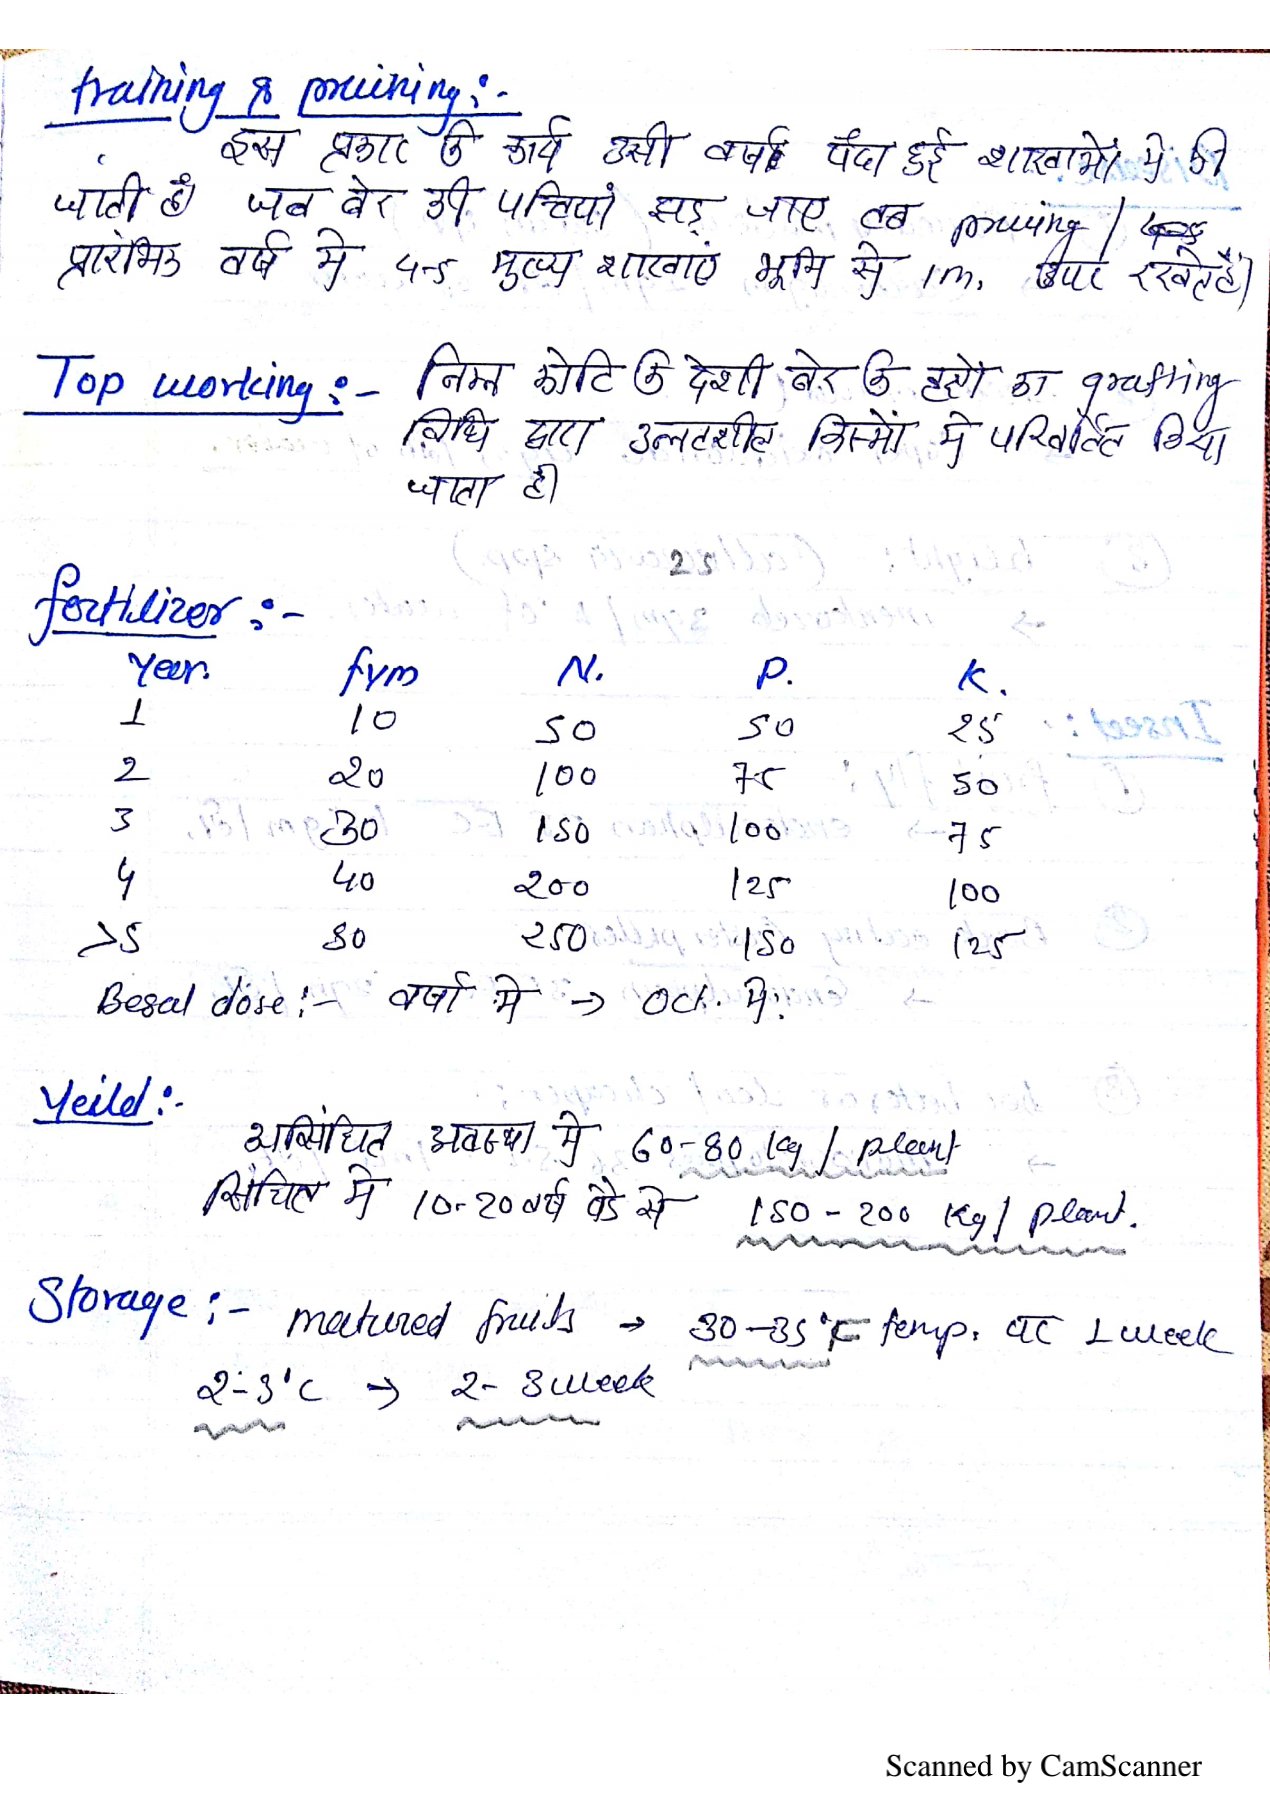 training & pruining:-
इस प्रकार के कार्य उसी वर्ष पैदा हुई शाखाओं में की
जाती है। जब बेर की पत्तियां झड़ जाए तब pruuing /
प्रारंभिक वर्ष में 4-5 मुख्य शाखाएं भूमि से 1m. उपर रखते है।
Top working:- निम्न कोटि के देशी बेर के वृक्षों का grafting
विधि द्वारा उन्नतशील किस्मों में परिवर्तित किया
जाता है।
25
fertilizer:-
Year. fym N. P. K.
1 10 50 50 25
2 20 100 75 50
3 30 150 100 75
4 40 200 125 100
>5 80 250 150 125
Besal dose:- वर्षा में → Oct. में.
Yeild:-
असिंचित अवस्था में 60-80 kg / plant
सिंचित में 10-20 वर्ष पेड़ से 150-200 kg / plant.
Storage:- matured fruits → 30-35°F temp. पर 1 week
2-3°C → 2-3 week
Scanned by CamScanner